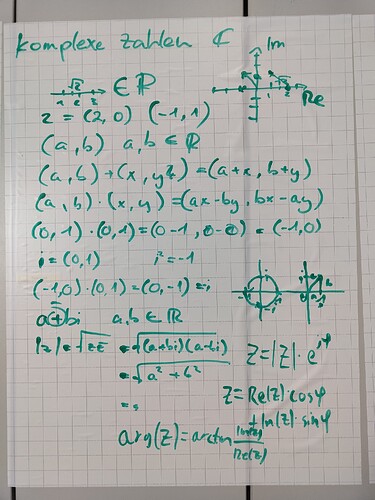 Komplexe Zahlen ℂ
Im
√2 ∈ ℝ
1 2 3
Re
z = (2, 0) (-1, 1)
(a, b) a, b ∈ ℝ
(a, b) + (x, y) = (a+x, b+y)
(a, b) · (x, y) = (ax - by, bx - ay)
(0, 1) · (0, 1) = (0-1, 0-0) = (-1, 0)
i = (0, 1) i² = -1
(-1, 0) · (0, 1) = (0, -1) = -i
a + bi a, b ∈ ℝ
|z| = √z z̅ = √(a+bi)(a-bi)
= √a² + b²
z = |z| · e^iφ
z = Re(z) cos φ
+ Im(z) · sin φ
arg(z) = arctan Im(z)/Re(z)